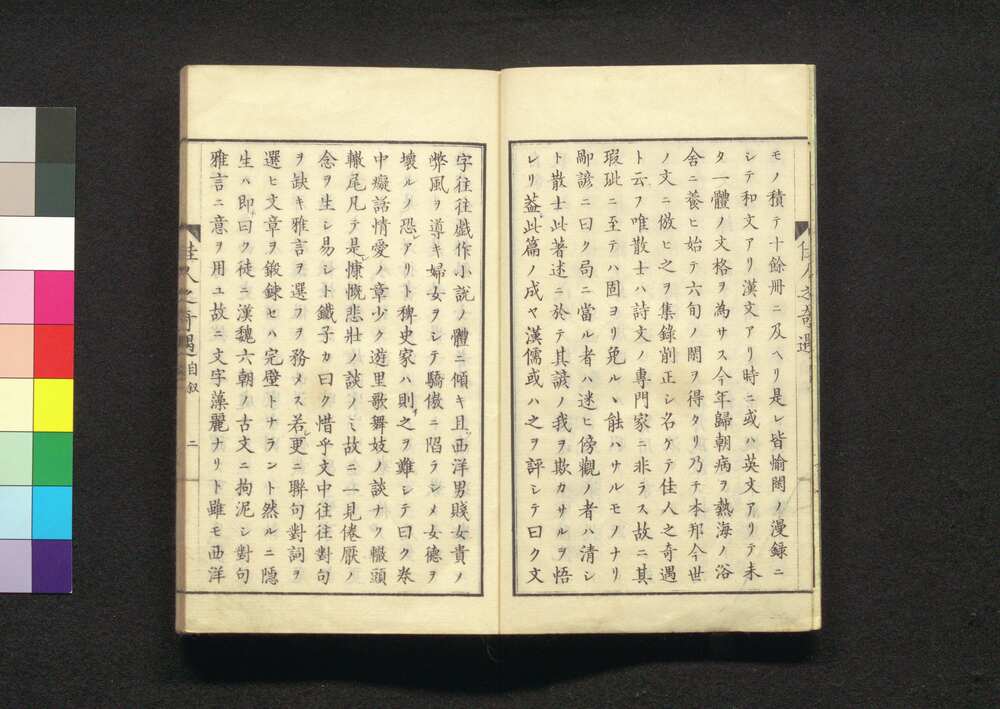 モノ積テ十餘冊ニ及ヘリ是レ皆愉閑ノ漫録ニ
シテ和文アリ漢文アリ時ニ或ハ英文アリテ未
タ一體ノ文格ヲ為サス今年歸朝病ヲ熱海ノ浴
舎ニ養ヒ始テ六旬ノ閑ヲ得タリ乃チ本邦今世
ノ文ニ倣ヒ之ヲ集録削正シ名ケテ佳人之奇遇
ト云フ唯散士ハ詩文ノ專門家ニ非ラス故ニ其
瑕玼ニ至テハ固ヨリ免ルヽ能ハサルモノナリ
鄙諺ニ曰ク局ニ當ル者ハ迷ヒ傍觀ノ者ハ清シ
ト散士此著述ニ於テ其諺ノ我ヲ欺カサルヲ悟
レリ葢此篇ノ成ヤ漢儒或ハ之ヲ評シテ曰ク文
字往往戯作小説ノ體ニ傾キ且西洋男賤女貴ノ
弊風ヲ導キ婦女ヲシテ驕傲ニ陷ラシメ女德ヲ
壊ルノ恐アリト稗史家ハ則之ヲ難シテ曰ク巻
中癡話情愛ノ章少ク遊里歌舞妓ノ談ナク輙頭
轍尾凡テ是慷慨悲壯ノ談ノミ故ニ一見倦厭ノ
念ヲ生シ易シト鐵子カ曰ク惜乎文中往往對句
ヲ缺キ雅言ヲ選フヲ務メス若更ニ聯句對詞ヲ
選ヒ文章ヲ鍛錬セハ完璧トナラント然ルニ隱
生ハ即曰ク徒ニ漢魏六朝ノ古文ニ拘泥シ對句
雅言ニ意ヲ用ユ故ニ文字藻麗ナリト雖モ西洋
佳人之奇遇
自叙
二
佳人之奇遇